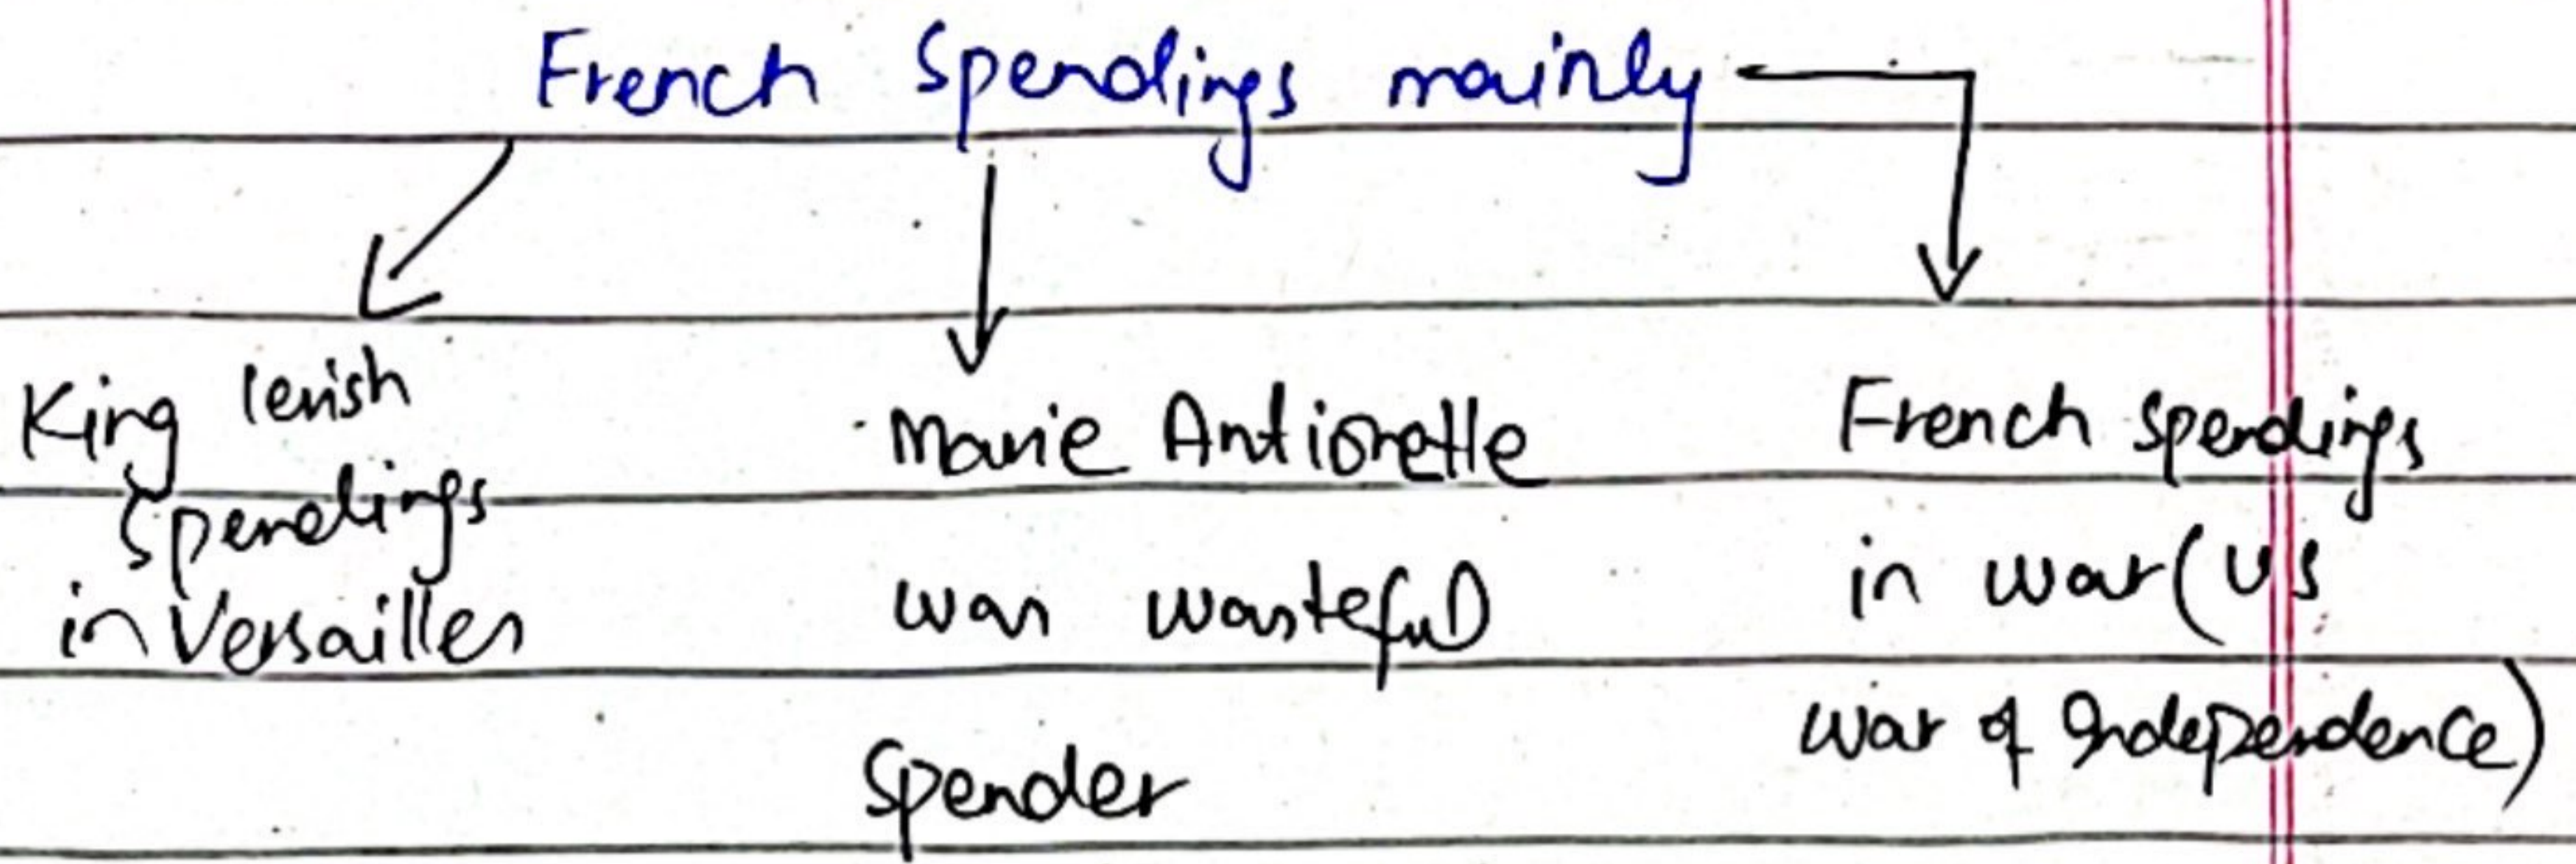 French Spendings mainly
King lavish
Spendings
in Versailles
Marie Antionette
was wasteful
Spender
French spendings
in war (US
war of Independence)